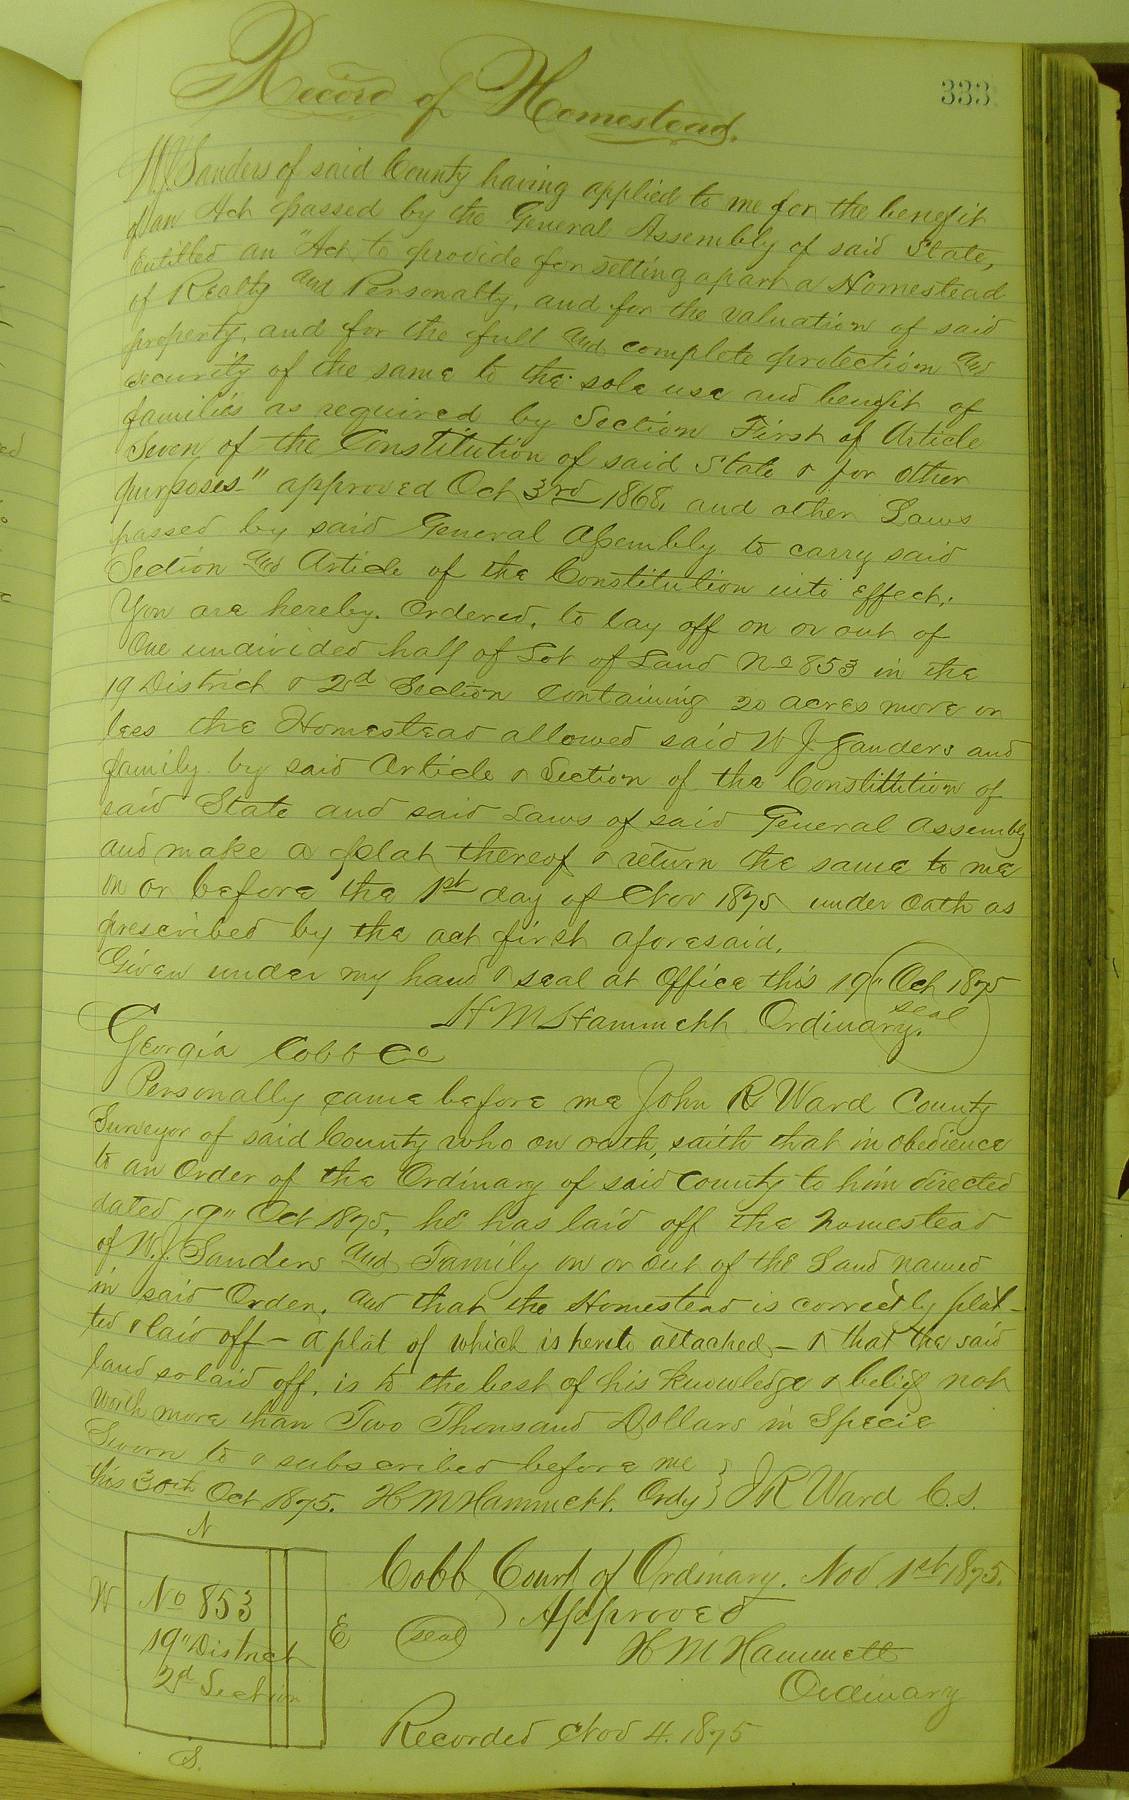 Record of Homestead.
333
W. J. Sanders of said County having applied to me for the benefit
of an Act passed by the General Assembly of said State,
Entitled an "Act, to provide for setting apart a Homestead
of Realty and Personalty, and for the valuation of said
property, and for the full and complete protection and
security of the same to the sole use and benefit of
families as required by Section First of Article
Seven of the Constitution of said State & for other
purposes" approved Oct 3rd 1868, and other Laws
passed by said General Assembly to carry said
Section and Article of the Constitution into effect;
You are hereby. Ordered, to lay off on or out of
One undivided half of Lot of Land No 853 in the
19 District & 2d Section containing 20 acres more or
less the Homestead allowed said W J. Sanders and
family by said Article & Section of the Constitution of
said State and said Laws of said General Assembly
and make a plat thereof & return the same to me
on or before the 1st day of Nov 1875 under oath as
prescribed by the act first aforesaid.
Given under my hand & seal at Office this 19" Oct 1875
seal
H M Hammett Ordinary.
Georgia Cobb Co
Personally came before me John R Ward County
Surveyor of said County who on oath, saith that in obedience
to an Order of the Ordinary of said County to him directed
dated 19" Oct 1875, he has laid off the homestead
of W. J. Sanders and Family on or out of the Land named
in said Order, and that the Homestead is correctly plat-
ted & laid off - a plat of which is hereto attached, - & that the said
land so laid off, is to the best of his knowledge & belief not
worth more than Two Thousand Dollars in Specie
Sworn to & subscribed before me }
this 30th Oct 1875. H M Hammett. Ordy } J R Ward C. S.
N
Cobb Court of Ordinary. Nov 1st 1875.
W No 853 E
(seal) Approved
19" District
H M Hammett
2d Section
Ordinary
Recorded Nov 4. 1875
S.